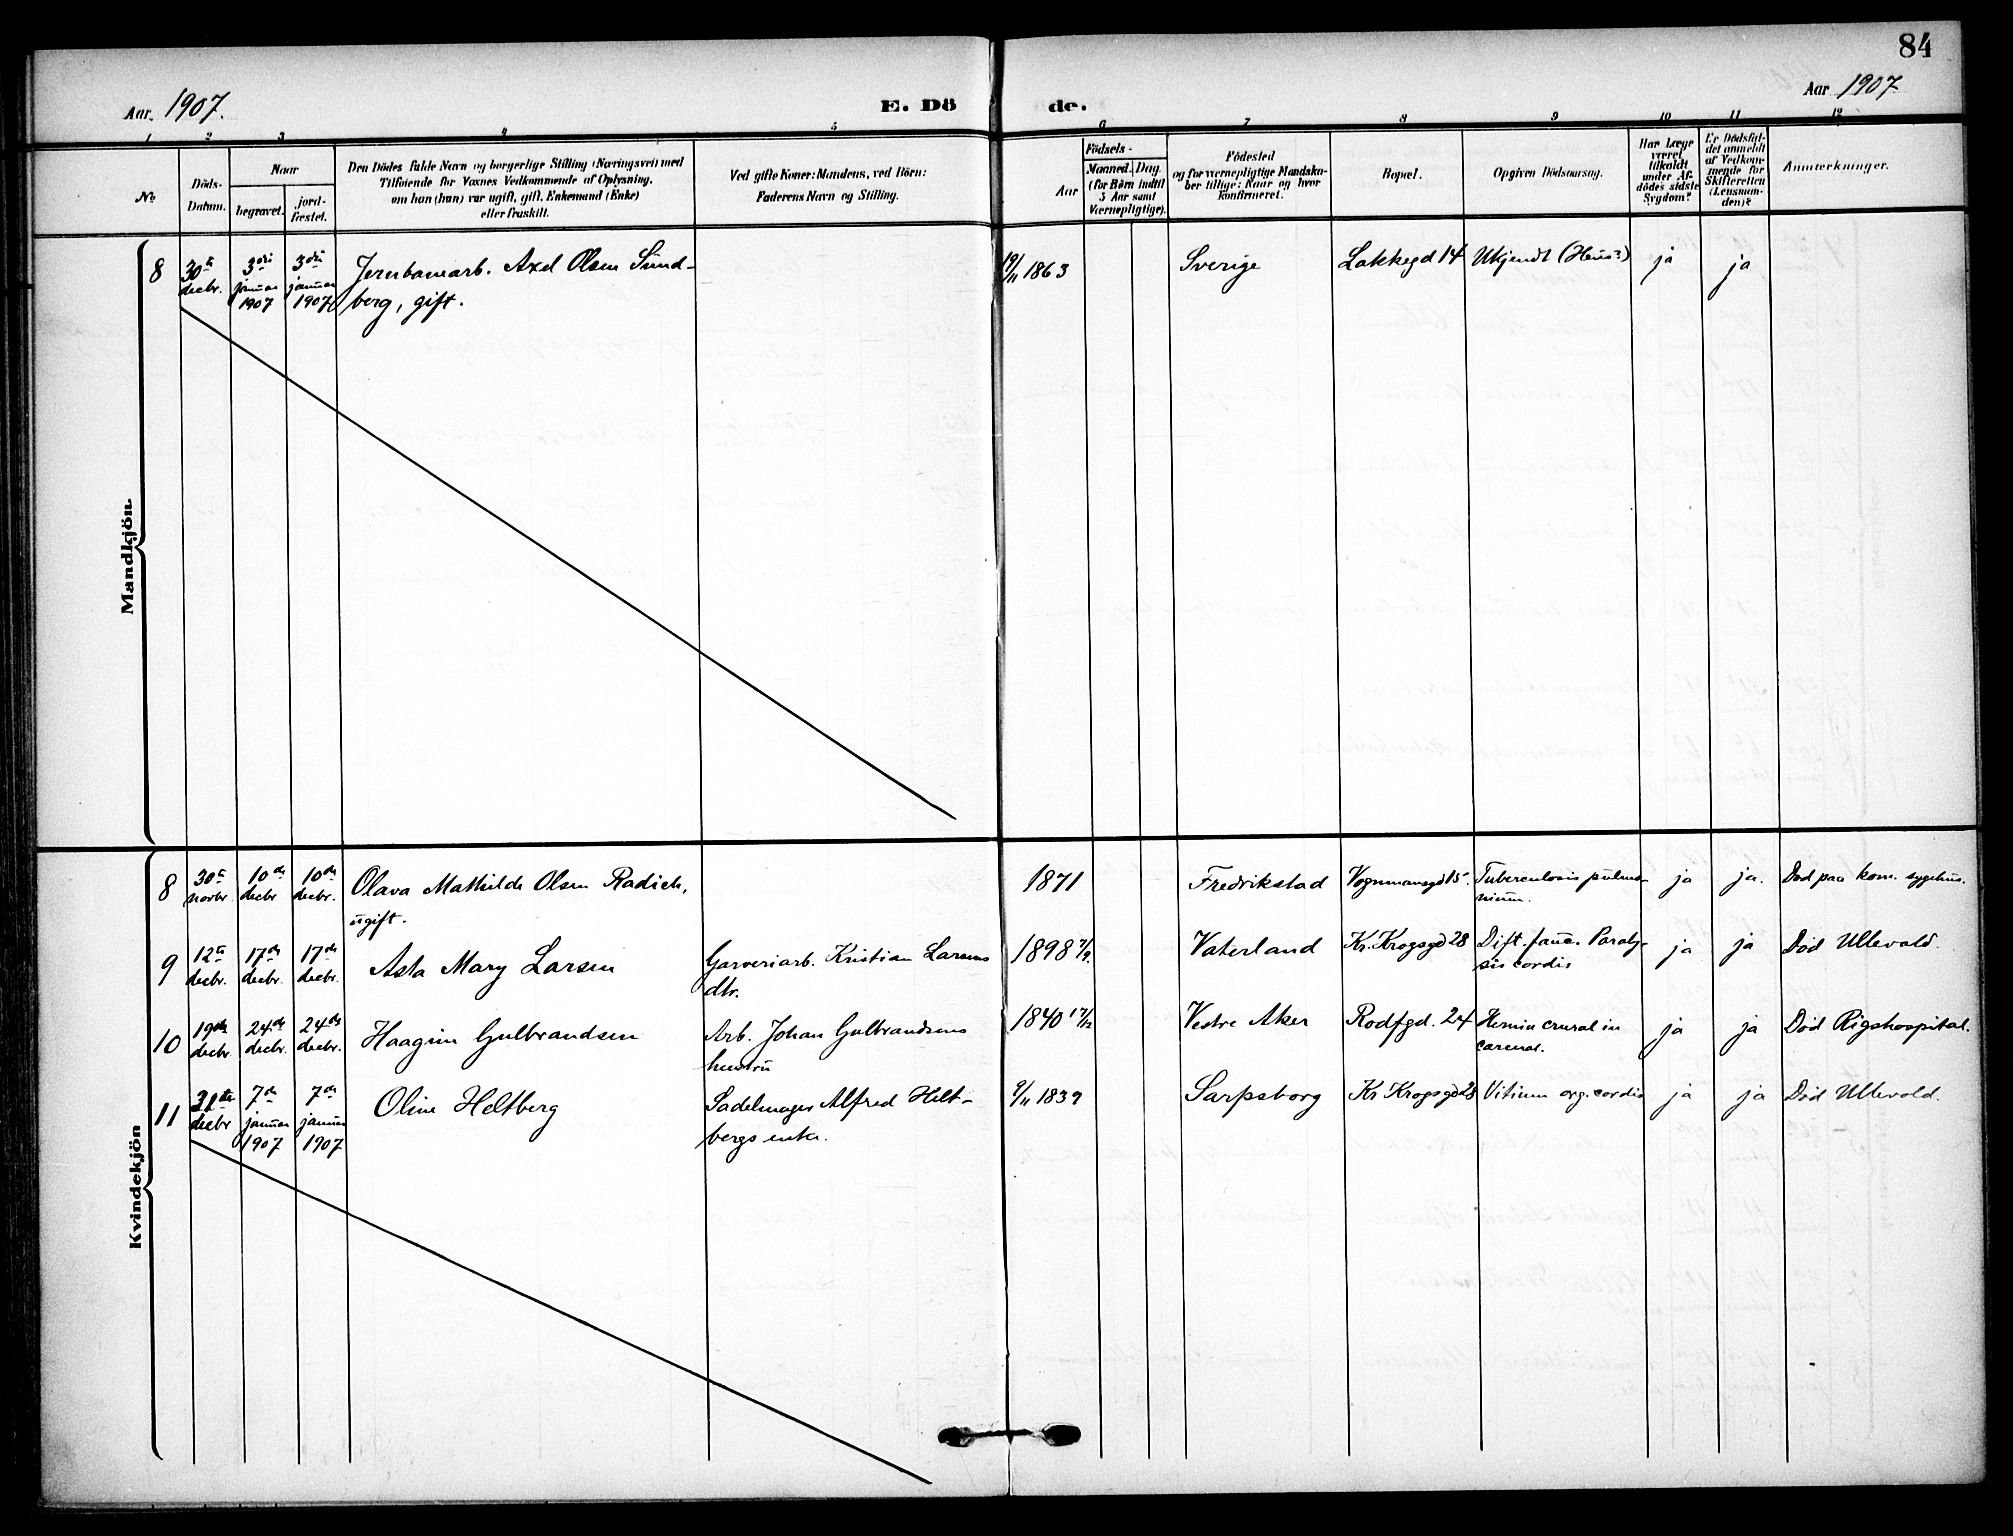 84
Aar 1907.
E. Dö
de.
Aar 1907
1 2 3 4 5 6 7 8 9 10 11 12
№
Döds-
Datum.
Naar
begravet.
jord-
fæstet.
Den Dödes fulde Navn og borgerlige Stilling (Næringsvei) med
Tilföiende for Voxnes Vedkommende af Oplysning,
om han (hun) var ugift, gift, Enkemand (Enke)
eller fraskilt.
Ved gifte Koner: Mandens, ved Börn:
Faderens Navn og Stilling.
Födsels-
Aar
Maaned. Dag.
(for Börn indtil
5 Aar samt
Værnepligtige).
Födested
og for værnepligtige Mandska-
ber tillige: Naar og hvor
konfirmeret.
Bopæl.
Opgiven Dödsaarsag.
Har Læge
været
tilkaldt
under Af-
dödes sidste
Sygdom?
Er Dödsfal-
det anmeldt
af Vedkom-
mende for
Skifteretten
(Lensman-
den)?
Anmærkninger.
Mandkjön.
8 30te decbr. 3die januar 1907 3die januar 1907 Jernbanearb. Axel Olsen Sund-
berg, gift.
19/11 1863 Sverige Lakkegd 14 Ukjendt (Heus?) ja ja
Kvindekjön
8 30te novbr 10de decbr 10de decbr. Olava Mathilde Olsen Radich,
ugift.
1871 Fredrikstad Vognmansgd 15 Tuberculosis pulmo-
nium. ja ja. Död paa kom. sygehus.
9 12te decbr. 17de decbr. 17de decbr. Asta Mary Larsen Garveriarb. Kristian Larsens
dtr.
1898 7/9. Vaterland Kr. Krogsgd 28 Dift. fauc. Paraly-
sis cordis ja ja Död Ullevold.
10 19de decbr. 24de decbr. 24de decbr. Haagine Gulbrandsen Arb. Johan Gulbrandsens
hustru
1840 17/12 Vestre Aker Rodfgd. 24 Hernia crural in
carcerat. ja ja Död Rigshospital.
11 31te decbr 7de januar 1907 7de januar 1907 Oline Heltberg Sadelmager Alfred Helt-
bergs enke.
9/11 1839 Sarpsborg Kr Krogsgd 28 Vitium org. cordis ja ja Död Ullevold.